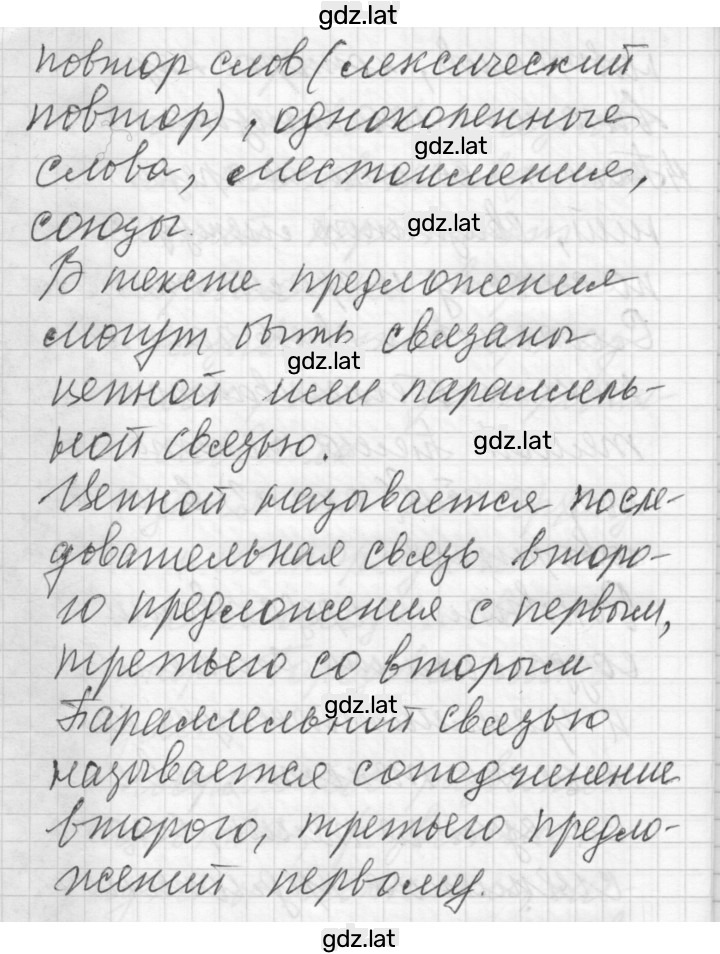 gdz.lat
повтор слов (лексический
повтор), однокоренные
gdz.lat
слова, местоимения,
союзы.
gdz.lat
В тексте предложения
могут быть связаны
gdz.lat
цепной или параллель-
ной связью.
gdz.lat
Цепной называется после-
довательная связь второ-
го предложения с первым,
третьего со вторым
gdz.lat
Параллельной связью
называется соподчинение
второго, третьего предло-
жений первому.
gdz.lat